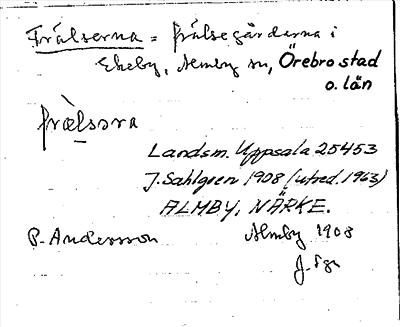 Frälserna = frälsegårdarna i
Ekeby, Almby sn, Örebro stad
o. län
fræ̀lsəra
Landsm. Uppsala 25453
J. Sahlgren 1908 (utred. 1963)
ALMBY, NÄRKE.
P. Andersson Almby 1908
J. Sgn